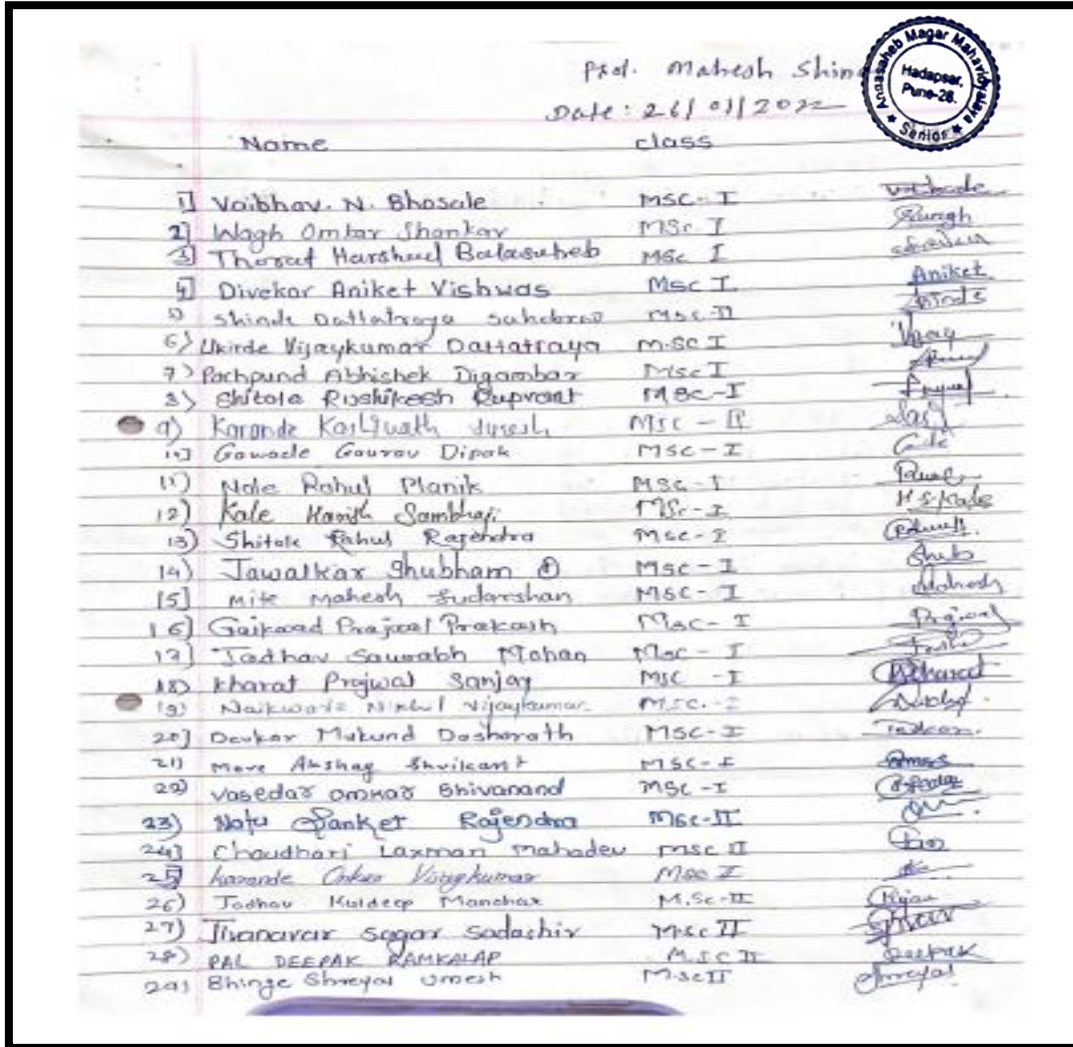 Prof. Mahesh Shin
Date: 26/01/2022
Annasaheb Magar Mahavidyalaya
Hadapsar,
Pune-28.
Senior
Name class
1] Vaibhav. N. Bhosale MSC-I
2] Wagh Omkar Shankar MSc I
3] Thorat Harshad Balasaheb MSc I
4] Divekar Aniket Vishwas Msc I Aniket
5) Shinde Dattatraya Sahebrao MSC-II Shinde
6) Ukirde Vijaykumar Dattatraya M.SC I Vijay
7) Pachpund Abhishek Digambar Msc I
8) Shitole Rushikesh Ruprant MSC-I
9) Karande Kashinath Suresh MSc - II
10] Gawade Gaurav Dipak MSC-I
11) Nale Rahul Manik MSC-I
12) Kale Sambhaji MSc-I H S Kale
13) Shitole Rahul Rajendra MSC-I
14) Jawalkar Shubham MSC-I Shub
15] Mahesh Sudarshan MSC-I Mahesh
16] Gaikwad Prajwal Prakash MSC-I Prajwal
17] Jadhav Saurabh Mohan MSC-I
18) Kharat Prajwal Sanjay MSC -I Kharat
19) Naikwade Nikhil Vijaykumar M.SC.-I
20] Devkar Mukund Dasharath MSC-I
21) More Akshay Shrikant MSC-I
22) Vasedar Omkar Shivanand MSC-I
23) Natu Sanket Rajendra MSC-II
24] Chaudhari Laxman Mahadev MSC II
25] Karande Vijaykumar Msc I
26) Jadhav Kuldeep Manohar M.Sc-II
27) Jivanavar Sagar Sadashiv M.Sc II
28) PAL DEEPAK RAMKALAP M.SC II Deepak
29) Bhinge Shreyas Umesh M.Sc II Shreyas